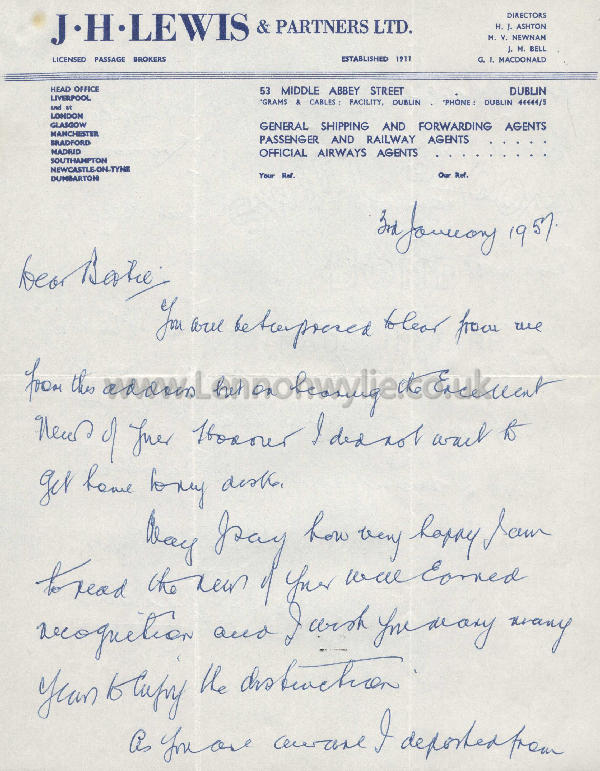 J·H·LEWIS & PARTNERS LTD.
LICENSED PASSAGE BROKERS
ESTABLISHED 1911
DIRECTORS
H. J. ASHTON
M. V. NEWNAM
J. M. BELL
G. I. MACDONALD
HEAD OFFICE
LIVERPOOL
and at
LONDON
GLASGOW
MANCHESTER
BRADFORD
MADRID
SOUTHAMPTON
NEWCASTLE-ON-TYNE
DUMBARTON
53 MIDDLE ABBEY STREET . DUBLIN
'GRAMS & CABLES: FACILITY, DUBLIN . 'PHONE: DUBLIN 44444/5
GENERAL SHIPPING AND FORWARDING AGENTS
PASSENGER AND RAILWAY AGENTS . . . . .
OFFICIAL AIRWAYS AGENTS . . . . . . . . .
Your Ref. Our Ref.
3rd January 1957.
Dear
You will be surprised to hear from me
from this address but on hearing the Excellent
News of your Honour I did not wait to
get home to my desk.
May I say how very happy I am
to read the news of your well Earned
recognition and I wish you many many
years to Enjoy the distinction
As you are aware I departed from
www.Lennonwylie.co.uk